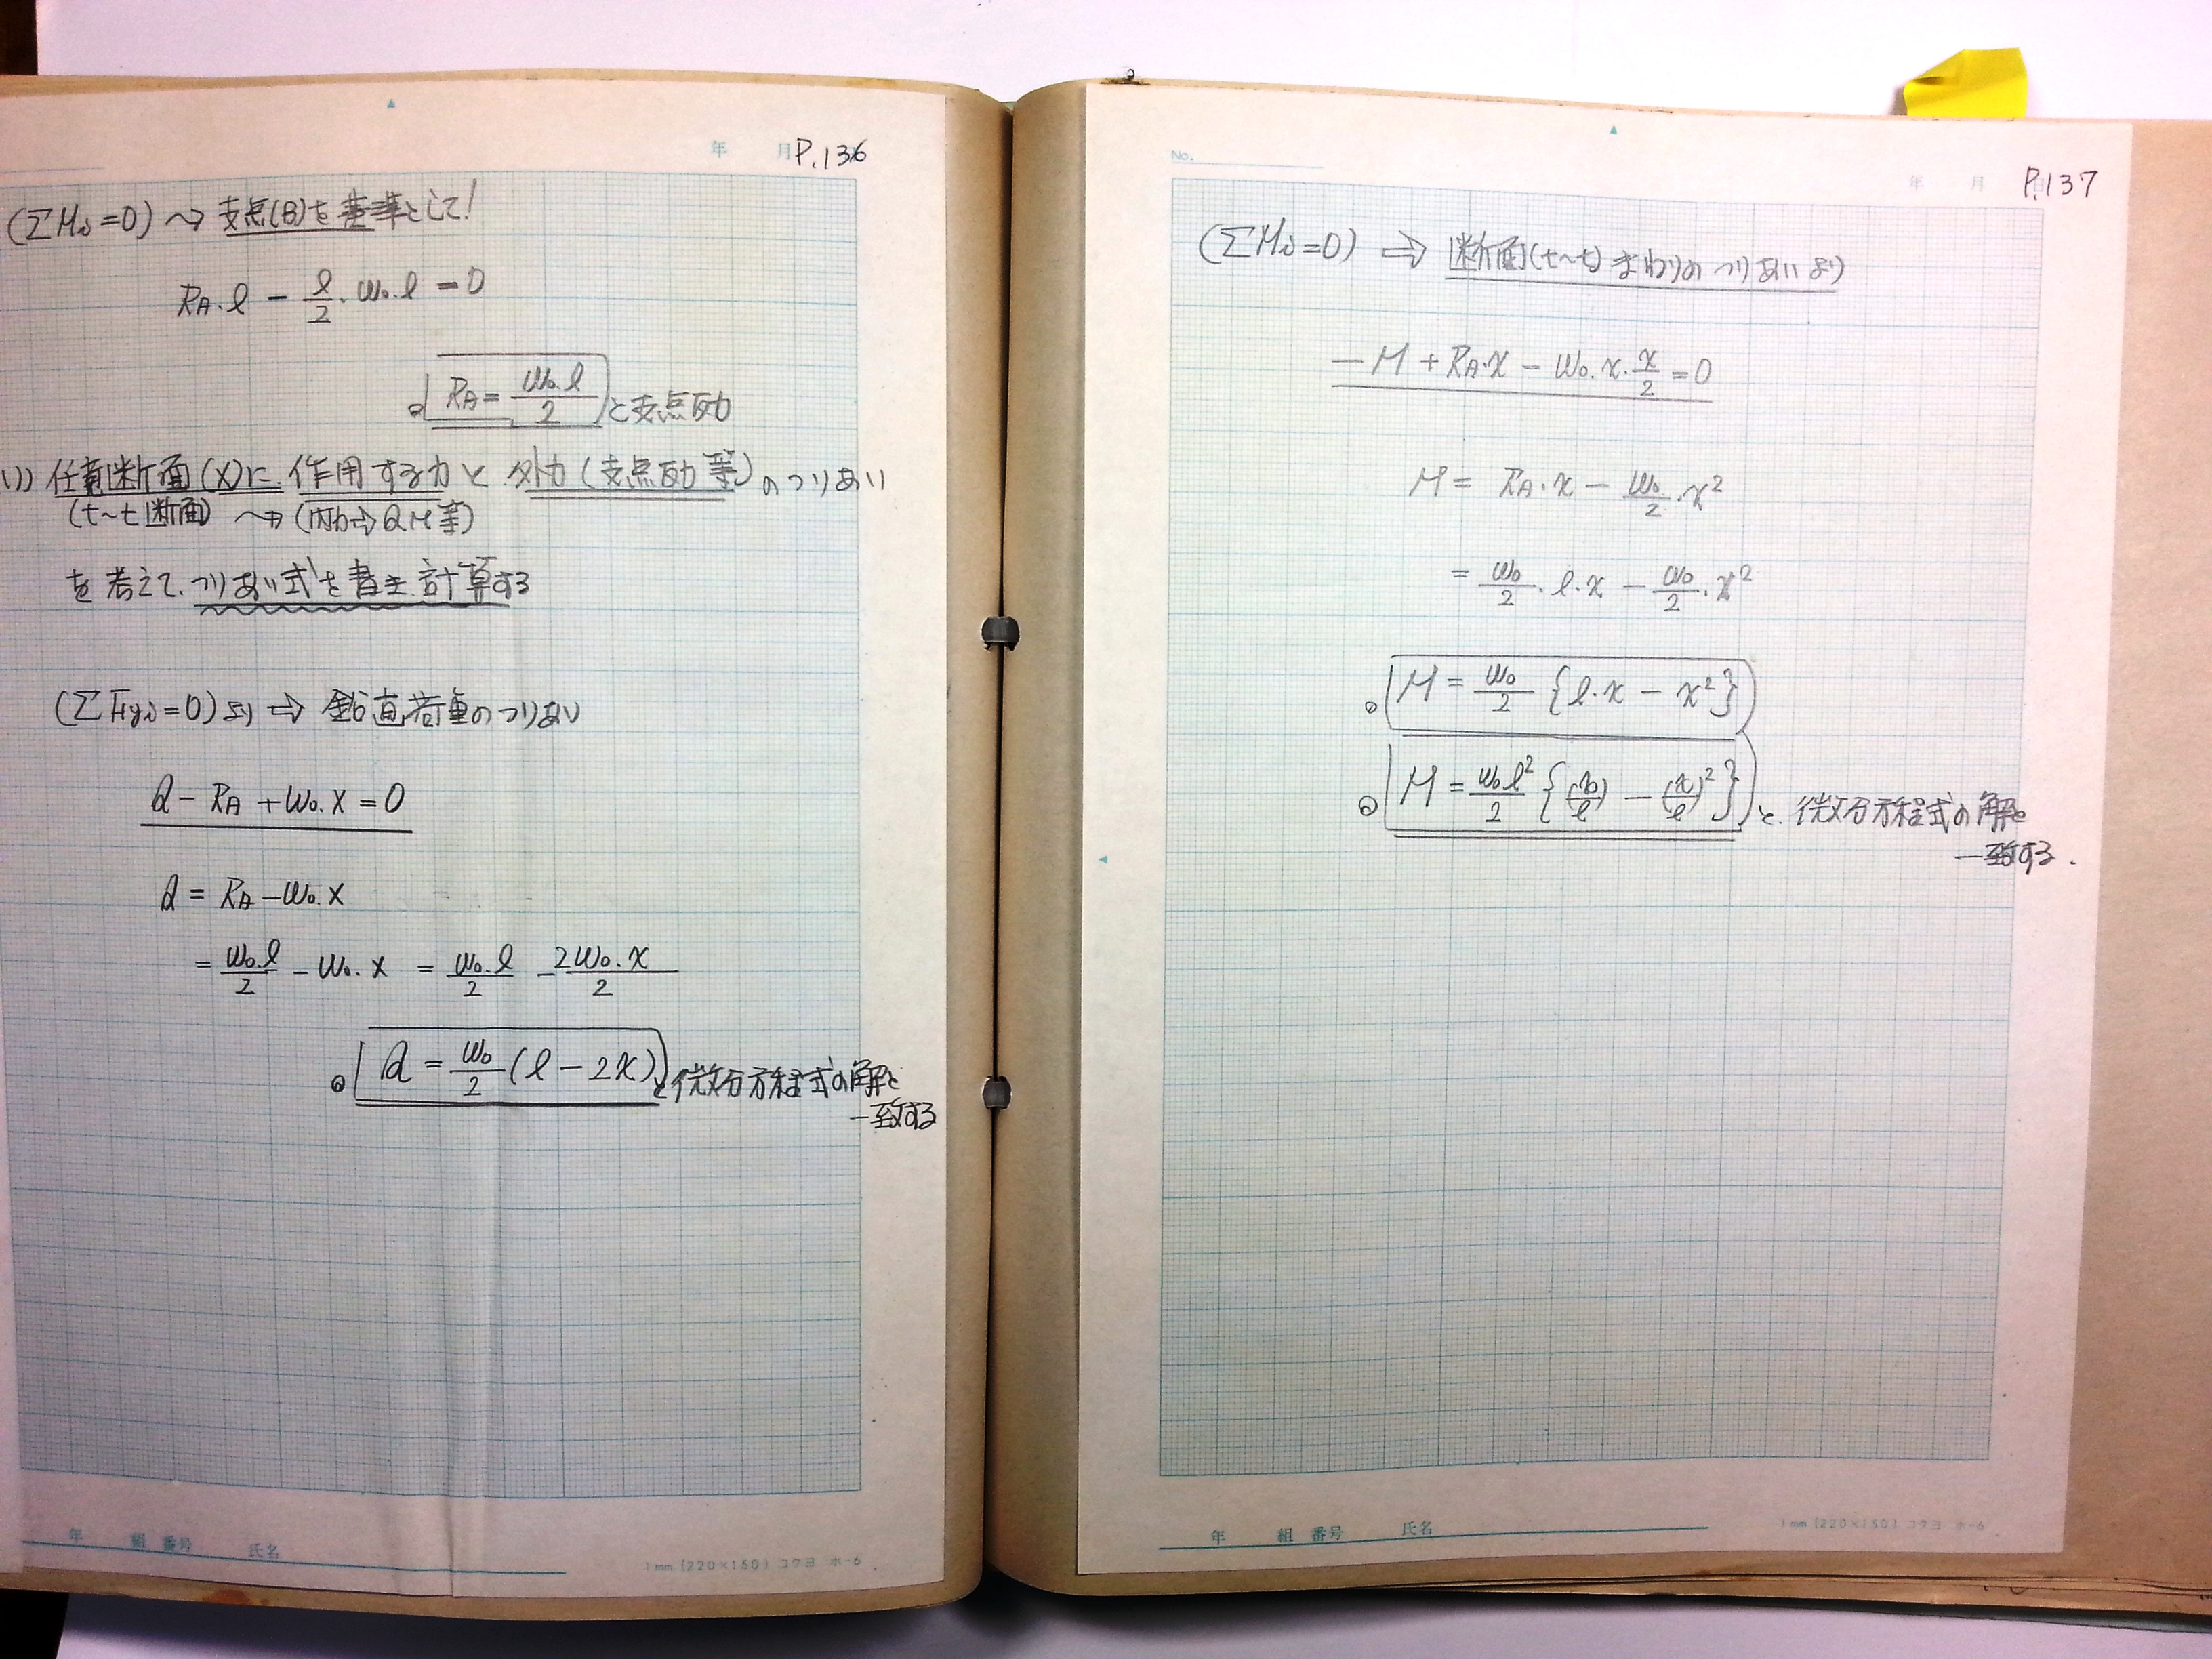 年 月 P.136
(ΣMi=0) ⇝ 支点(B)を基準として!
RA・l − l/2・w0・l = 0
RA = w0・l/2 と支点反力
ii) 任意断面(x)に作用する力と外力(支点反力等)のつりあい
(t~t断面) ⇝ (内力⇒Q,M等)
を考えて、つりあい式を書き、計算する
(ΣFyi=0)より ⇒ 鉛直荷重のつりあい
Q − RA + w0・x = 0
Q = RA − w0・x
= w0・l/2 − w0・x = w0・l/2 − 2w0・x/2
Q = w0/2 (l − 2x) と微分方程式の解と
一致する
年 組 番号 氏名
1mm (220×150) コクヨ ホ-6
No. 年 月 P.137
(ΣMi=0) ⇒ 断面(t~t)まわりのつりあいより
−M + RA・x − w0・x・x/2 = 0
M = RA・x − w0/2・x²
= w0/2・l・x − w0/2・x²
M = w0/2 {l・x − x²}
M = w0l²/2 {(x/l) − (x/l)²} と、微分方程式の解と
一致する.
年 組 番号 氏名
1mm (220×150) コクヨ ホ-6